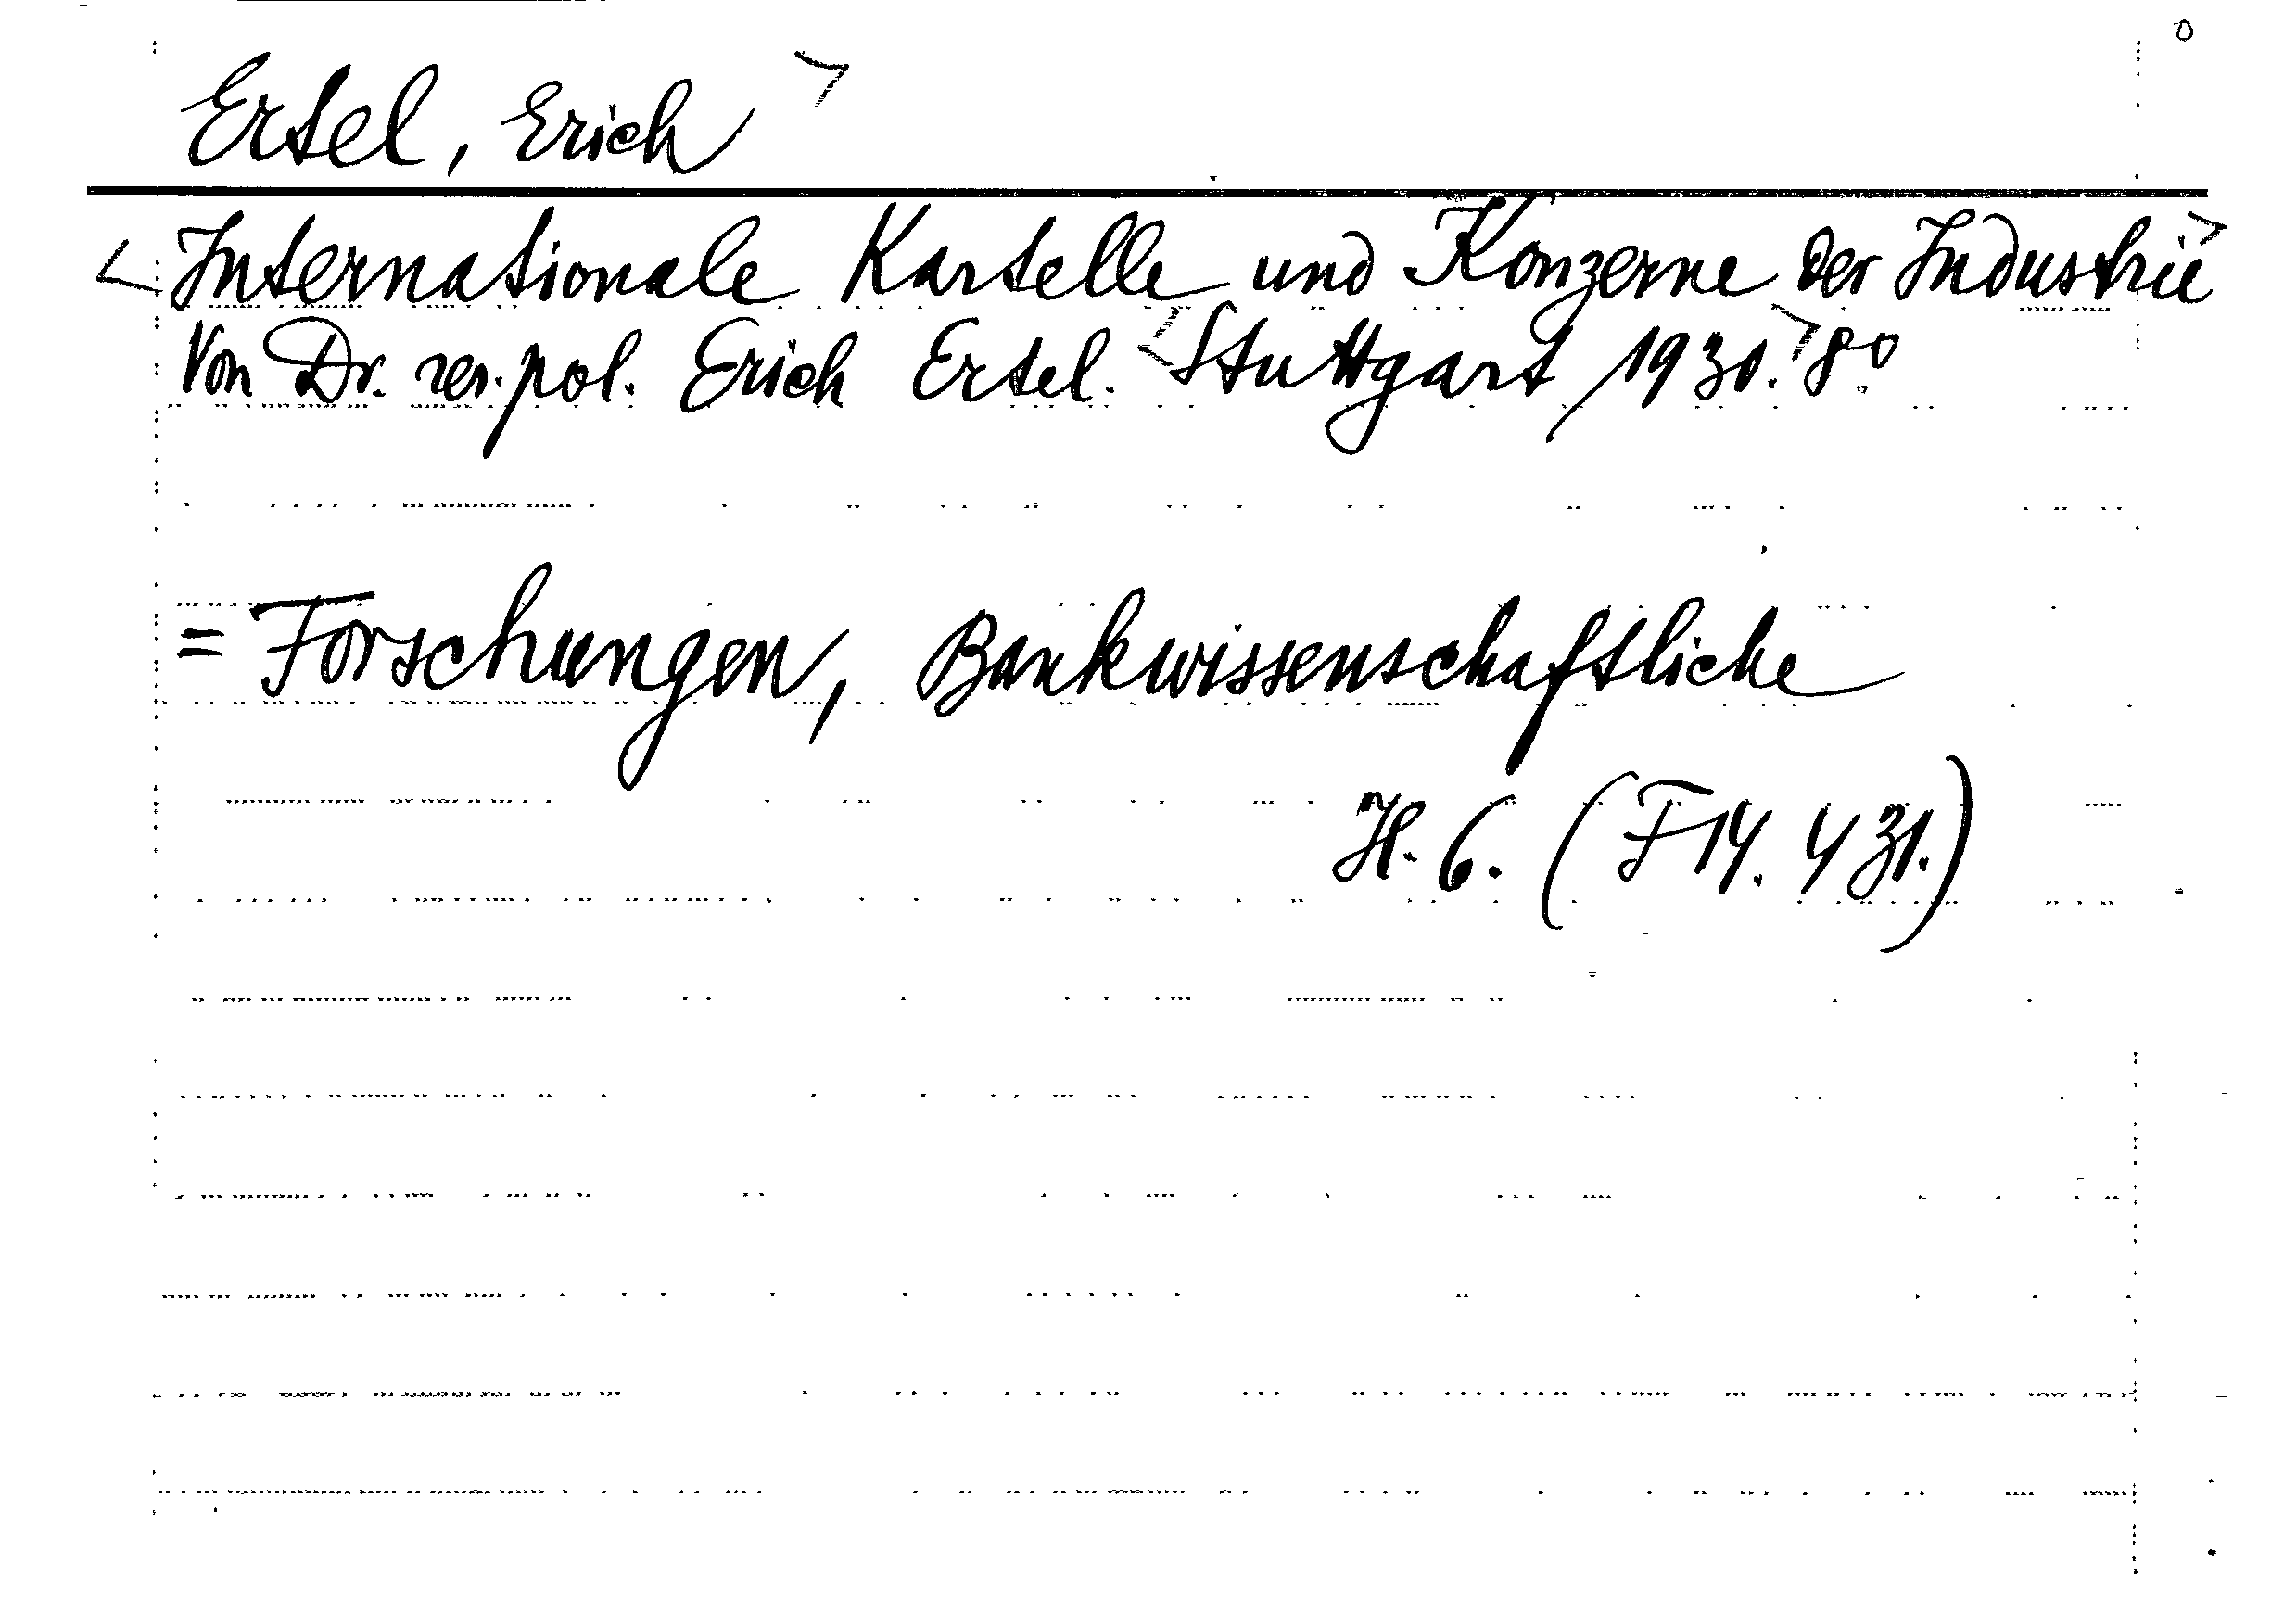 Ertel, Erich >
< Internationale Kartelle und Konzerne der Industrie >
Von Dr. rer. pol. Erich Ertel. < Stuttgart 1930. > 8°
= Forschungen, Bankwissenschaftliche
H. 6. (F 14. 431.)